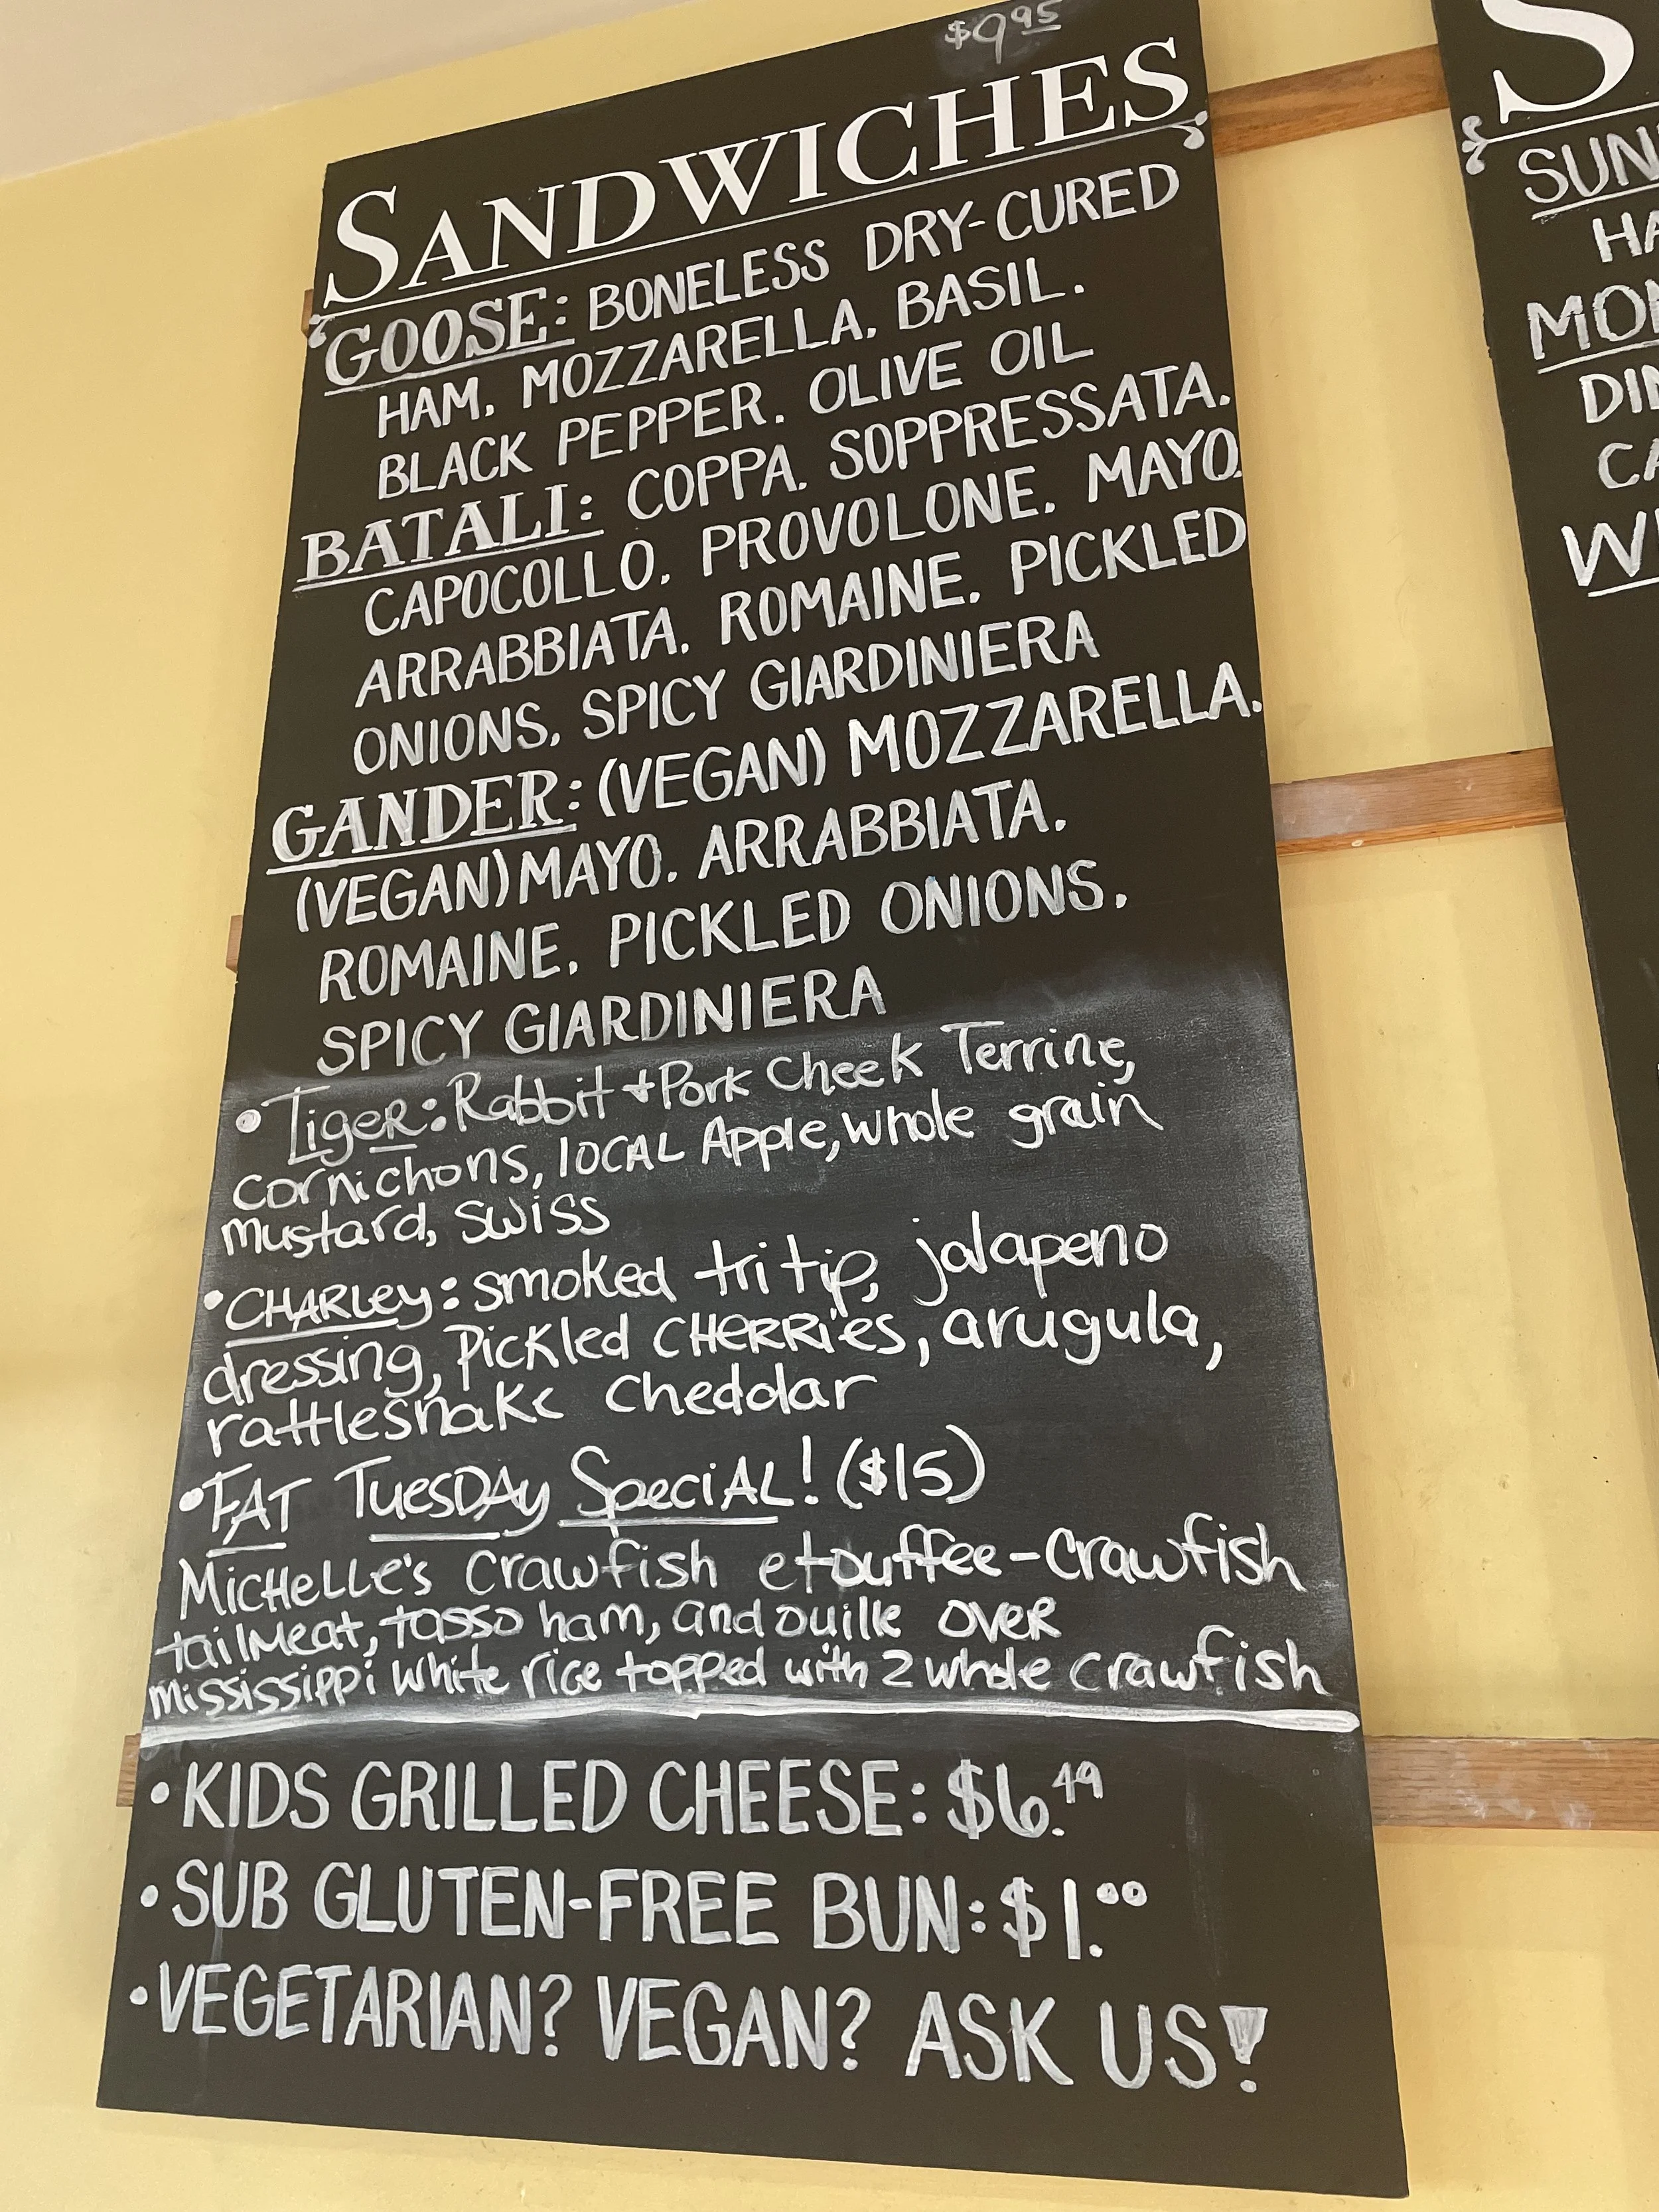 $9.95
SANDWICHES
GOOSE: BONELESS DRY-CURED
HAM. MOZZARELLA. BASIL.
BLACK PEPPER. OLIVE OIL
BATALI: COPPA. SOPPRESSATA.
CAPOCOLLO. PROVOLONE. MAYO.
ARRABBIATA. ROMAINE. PICKLED
ONIONS. SPICY GIARDINIERA
GANDER: (VEGAN) MOZZARELLA.
(VEGAN) MAYO. ARRABBIATA.
ROMAINE. PICKLED ONIONS.
SPICY GIARDINIERA
• Tiger: Rabbit + Pork Cheek Terrine,
cornichons, local Apple, whole grain
mustard, swiss
• CHARLey: smoked tri tip, jalapeno
dressing, Pickled CHERRies, arugula,
rattlesnake cheddar
• FAT TuesDAy SpeciAL! ($15)
MicHeLLe's crawfish etouffee - crawfish
tail meat, tasso ham, andouille over
mississippi white rice topped with 2 whole crawfish
• KIDS GRILLED CHEESE: $6.49
• SUB GLUTEN-FREE BUN: $1.00
• VEGETARIAN? VEGAN? ASK US!
S
SUN
HA
MON
DIN
CA